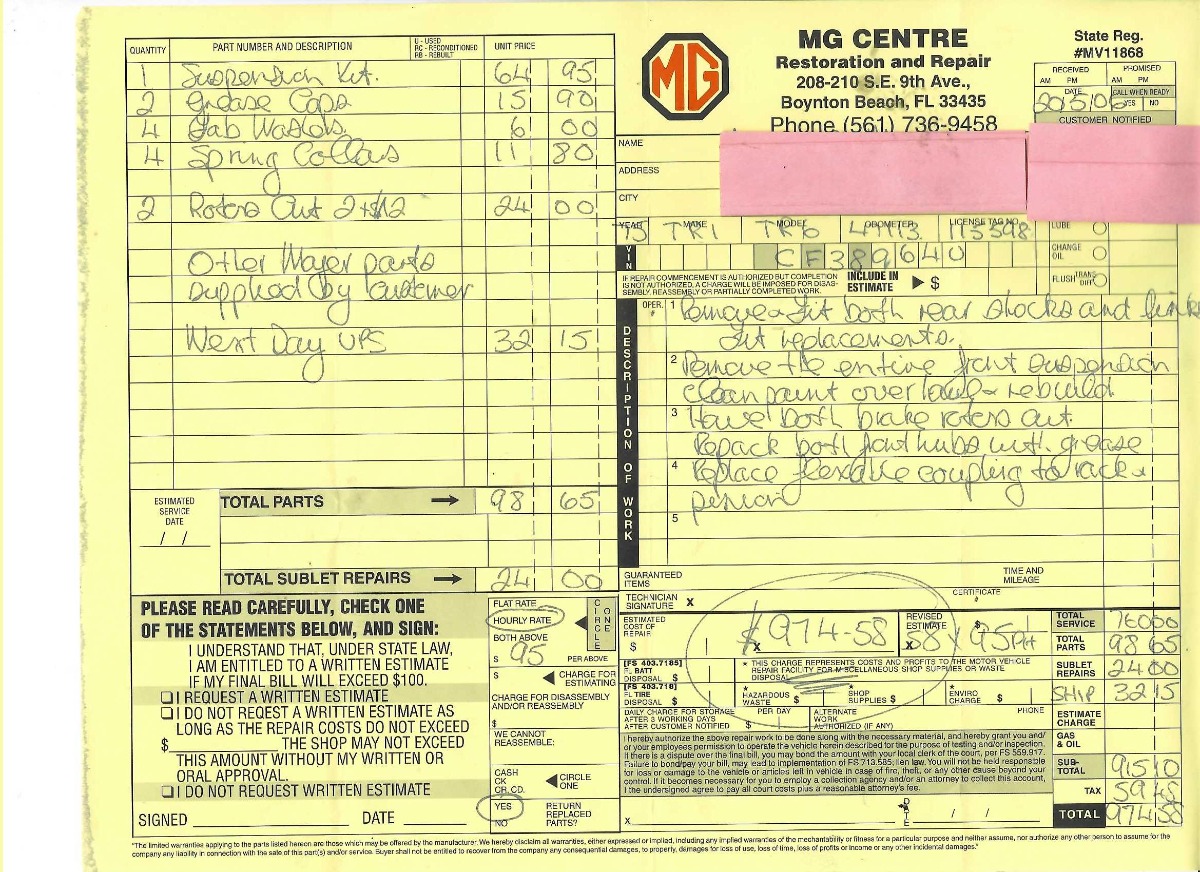 QUANTITY PART NUMBER AND DESCRIPTION U - USED RC - RECONDITIONED RB - REBUILT UNIT PRICE
1 Suspension Kit. 64 95
2 Grease Caps 15 90
4 Tab Washers 6 00
4 Spring Collars 11 80
2 Rotors Cut 2+$12 24 00
Other Major parts
supplied by customer
Next Day UPS 32 15
ESTIMATED SERVICE DATE
/ /
TOTAL PARTS 98 65
TOTAL SUBLET REPAIRS 24 00
PLEASE READ CAREFULLY, CHECK ONE
OF THE STATEMENTS BELOW, AND SIGN:
I UNDERSTAND THAT, UNDER STATE LAW,
I AM ENTITLED TO A WRITTEN ESTIMATE
IF MY FINAL BILL WILL EXCEED $100.
I REQUEST A WRITTEN ESTIMATE
I DO NOT REQEST A WRITTEN ESTIMATE AS
LONG AS THE REPAIR COSTS DO NOT EXCEED
$ THE SHOP MAY NOT EXCEED
THIS AMOUNT WITHOUT MY WRITTEN OR
ORAL APPROVAL.
I DO NOT REQUEST WRITTEN ESTIMATE
SIGNED DATE
FLAT RATE
HOURLY RATE
BOTH ABOVE
CIRCLE ONE
$ 95 PER ABOVE
$ CHARGE FOR ESTIMATING
CHARGE FOR DISASSEMBLY
AND/OR REASSEMBLY
$
WE CANNOT
REASSEMBLE:
CASH
CK
CR. CD.
CIRCLE ONE
YES
NO
RETURN REPLACED PARTS?
MG
MG CENTRE
Restoration and Repair
208-210 S.E. 9th Ave.,
Boynton Beach, FL 33435
Phone (561) 736-9458
State Reg.
#MV11868
RECEIVED PROMISED
AM PM AM PM
DATE CALL WHEN READY
YES NO
CUSTOMER NOTIFIED
NAME
ADDRESS
CITY
YEAR MAKE MODEL ODOMETER LICENSE TAG NO.
75 TRI TR6
VIN CF38964U
LUBE
CHANGE OIL
FLUSH TRANS DIFF
IF REPAIR COMMENCEMENT IS AUTHORIZED BUT COMPLETION
IS NOT AUTHORIZED, A CHARGE WILL BE IMPOSED FOR DISAS-
SEMBLY, REASSEMBLY OR PARTIALLY COMPLETED WORK.
INCLUDE IN ESTIMATE $
OPER. #
DESCRIPTION OF WORK
1 Remove + fit both rear shocks and links
fit replacements.
2 Remove the entire front suspension
clean paint overhaul + rebuild
3 Have both brake rotors cut
Repack both front hubs with grease
4 Replace flexable coupling to rack +
penion
5
GUARANTEED ITEMS
TIME AND MILEAGE
TECHNICIAN SIGNATURE X
CERTIFICATE #
ESTIMATED COST OF REPAIR
$
$974-58
X
REVISED ESTIMATE $
X
95PH
[FS 403.7185]
FL BATT DISPOSAL $
[FS 403.718]
FL TIRE DISPOSAL $
* THIS CHARGE REPRESENTS COSTS AND PROFITS TO THE MOTOR VEHICLE
REPAIR FACILITY FOR MISCELLANEOUS SHOP SUPPLIES OR WASTE
DISPOSAL
* HAZARDOUS WASTE $
* SHOP SUPPLIES $
* ENVIRO CHARGE $
DAILY CHARGE FOR STORAGE
AFTER 3 WORKING DAYS
AFTER CUSTOMER NOTIFIED
PER DAY
$
ALTERNATE
WORK
AUTHORIZED (IF ANY)
PHONE
I hereby authorize the above repair work to be done along with the necessary material, and hereby grant you and/
or your employees permission to operate the vehicle herein described for the purpose of testing and/or inspection.
If there is a dispute over the final bill, you may bond the amount with your local clerk of the court, per FS 559.917.
Failure to bond/pay your bill, may lead to implementation of FS 713.585, lien law. You will not be held responsible
for loss or damage to the vehicle or articles left in vehicle in case of fire, theft, or any other cause beyond your
control. If it becomes necessary for you to employ a collection agency and/or an attorney to collect this account,
I the undersigned agree to pay all court costs plus a reasonable attorney's fee.
X DATE / /
TOTAL SERVICE 760 00
TOTAL PARTS 98 65
SUBLET REPAIRS 24 00
SHIP 32 15
ESTIMATE CHARGE
GAS & OIL
SUB-TOTAL 915 10
TAX 59 48
TOTAL 974 58
"The limited warranties applying to the parts listed hereon are those which may be offered by the manufacturer. We hereby disclaim all warranties, either expressed or implied, including any implied warranties of the mechantability or fitness for a particular purpose and neither assume, nor authorize any other person to assume for the
company any liability in connection with the sale of this part(s) and/or service. Buyer shall not be entitled to recover from the company any consequential damages, to property, damages for loss of use, loss of time, loss of profits or income or any other incidental damages."